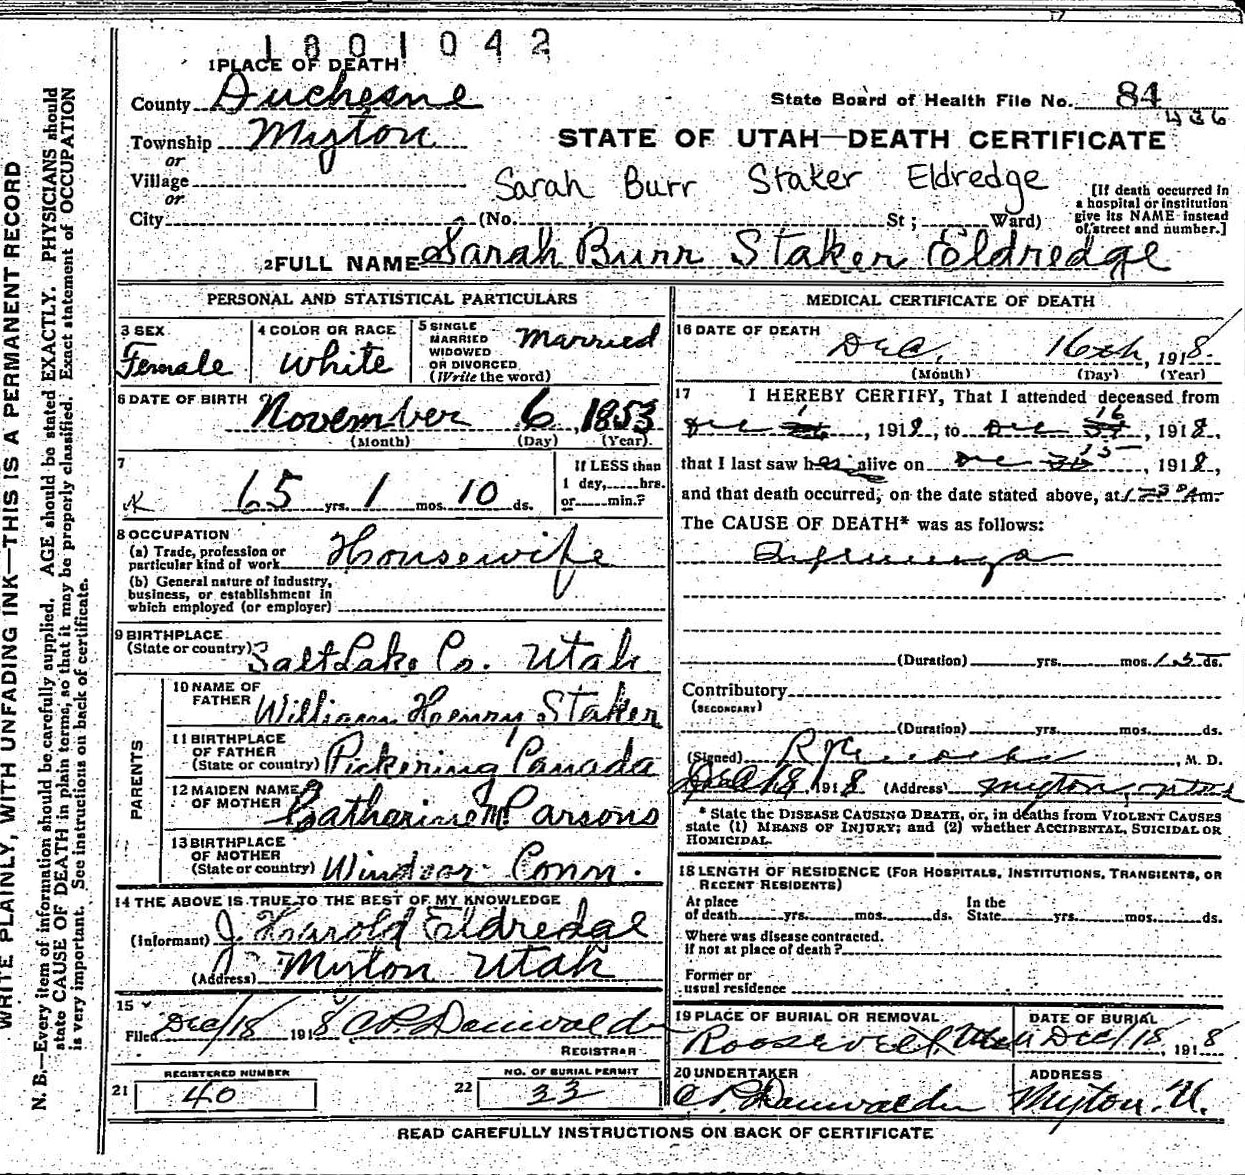 1801042
1 PLACE OF DEATH
County Duchesne
State Board of Health File No. 84
436
Township Myton
STATE OF UTAH—DEATH CERTIFICATE
or
Village
Sarah Burr Staker Eldredge
or
City (No. St; Ward)
[If death occurred in
a hospital or institution
give its NAME instead
of street and number.]
2 FULL NAME Sarah Burr Staker Eldredge
PERSONAL AND STATISTICAL PARTICULARS
3 SEX
Female
4 COLOR OR RACE
White
5 SINGLE
MARRIED
WIDOWED
OR DIVORCED
(Write the word)
Married
6 DATE OF BIRTH
November 6, 1853
(Month) (Day) (Year)
7
65 yrs. 1 mos. 10 ds.
If LESS than
1 day, hrs.
or min.?
8 OCCUPATION
(a) Trade, profession or
particular kind of work Housewife
(b) General nature of industry,
business, or establishment in
which employed (or employer)
9 BIRTHPLACE
(State or country) Salt Lake Co. Utah
PARENTS
10 NAME OF
FATHER William Henry Staker
11 BIRTHPLACE
OF FATHER
(State or country) Pickering Canada
12 MAIDEN NAME
OF MOTHER Catherine M Parsons
13 BIRTHPLACE
OF MOTHER
(State or country) Windsor Conn.
14 THE ABOVE IS TRUE TO THE BEST OF MY KNOWLEDGE
(Informant) J. Harold Eldredge
(Address) Myton Utah
15
Filed Dec/18 1918 C P Danwalder
REGISTRAR
REGISTERED NUMBER
21 40
NO. OF BURIAL PERMIT
22 33
MEDICAL CERTIFICATE OF DEATH
16 DATE OF DEATH
Dec. 16th, 1918.
(Month) (Day) (Year)
17 I HEREBY CERTIFY, That I attended deceased from
Dec 1, 1918, to Dec 16, 1918,
that I last saw her alive on Dec 15, 1918,
and that death occurred, on the date stated above, at m.
The CAUSE OF DEATH* was as follows:
Influenza
(Duration) yrs. mos. 15 ds.
Contributory
(SECONDARY)
(Duration) yrs. mos. ds.
(Signed) M. D.
Dec 18 1918 (Address) Myton, Utah
* State the DISEASE CAUSING DEATH, or, in deaths from VIOLENT CAUSES
state (1) MEANS OF INJURY; and (2) whether ACCIDENTAL, SUICIDAL OR
HOMICIDAL.
18 LENGTH OF RESIDENCE (FOR HOSPITALS, INSTITUTIONS, TRANSIENTS, OR
RECENT RESIDENTS)
At place
of death yrs. mos. ds.
In the
State yrs. mos. ds.
Where was disease contracted.
If not at place of death?
Former or
usual residence
19 PLACE OF BURIAL OR REMOVAL
Roosevelt, Utah
DATE OF BURIAL
Dec/18, 1918
20 UNDERTAKER
C P Danwalder
ADDRESS
Myton. U.
READ CAREFULLY INSTRUCTIONS ON BACK OF CERTIFICATE
WRITE PLAINLY, WITH UNFADING INK—THIS IS A PERMANENT RECORD
N. B.—Every item of information should be carefully supplied. AGE should be stated EXACTLY. PHYSICIANS should
state CAUSE OF DEATH in plain terms, so that it may be properly classified. Exact statement of OCCUPATION
is very important. See instructions on back of certificate.